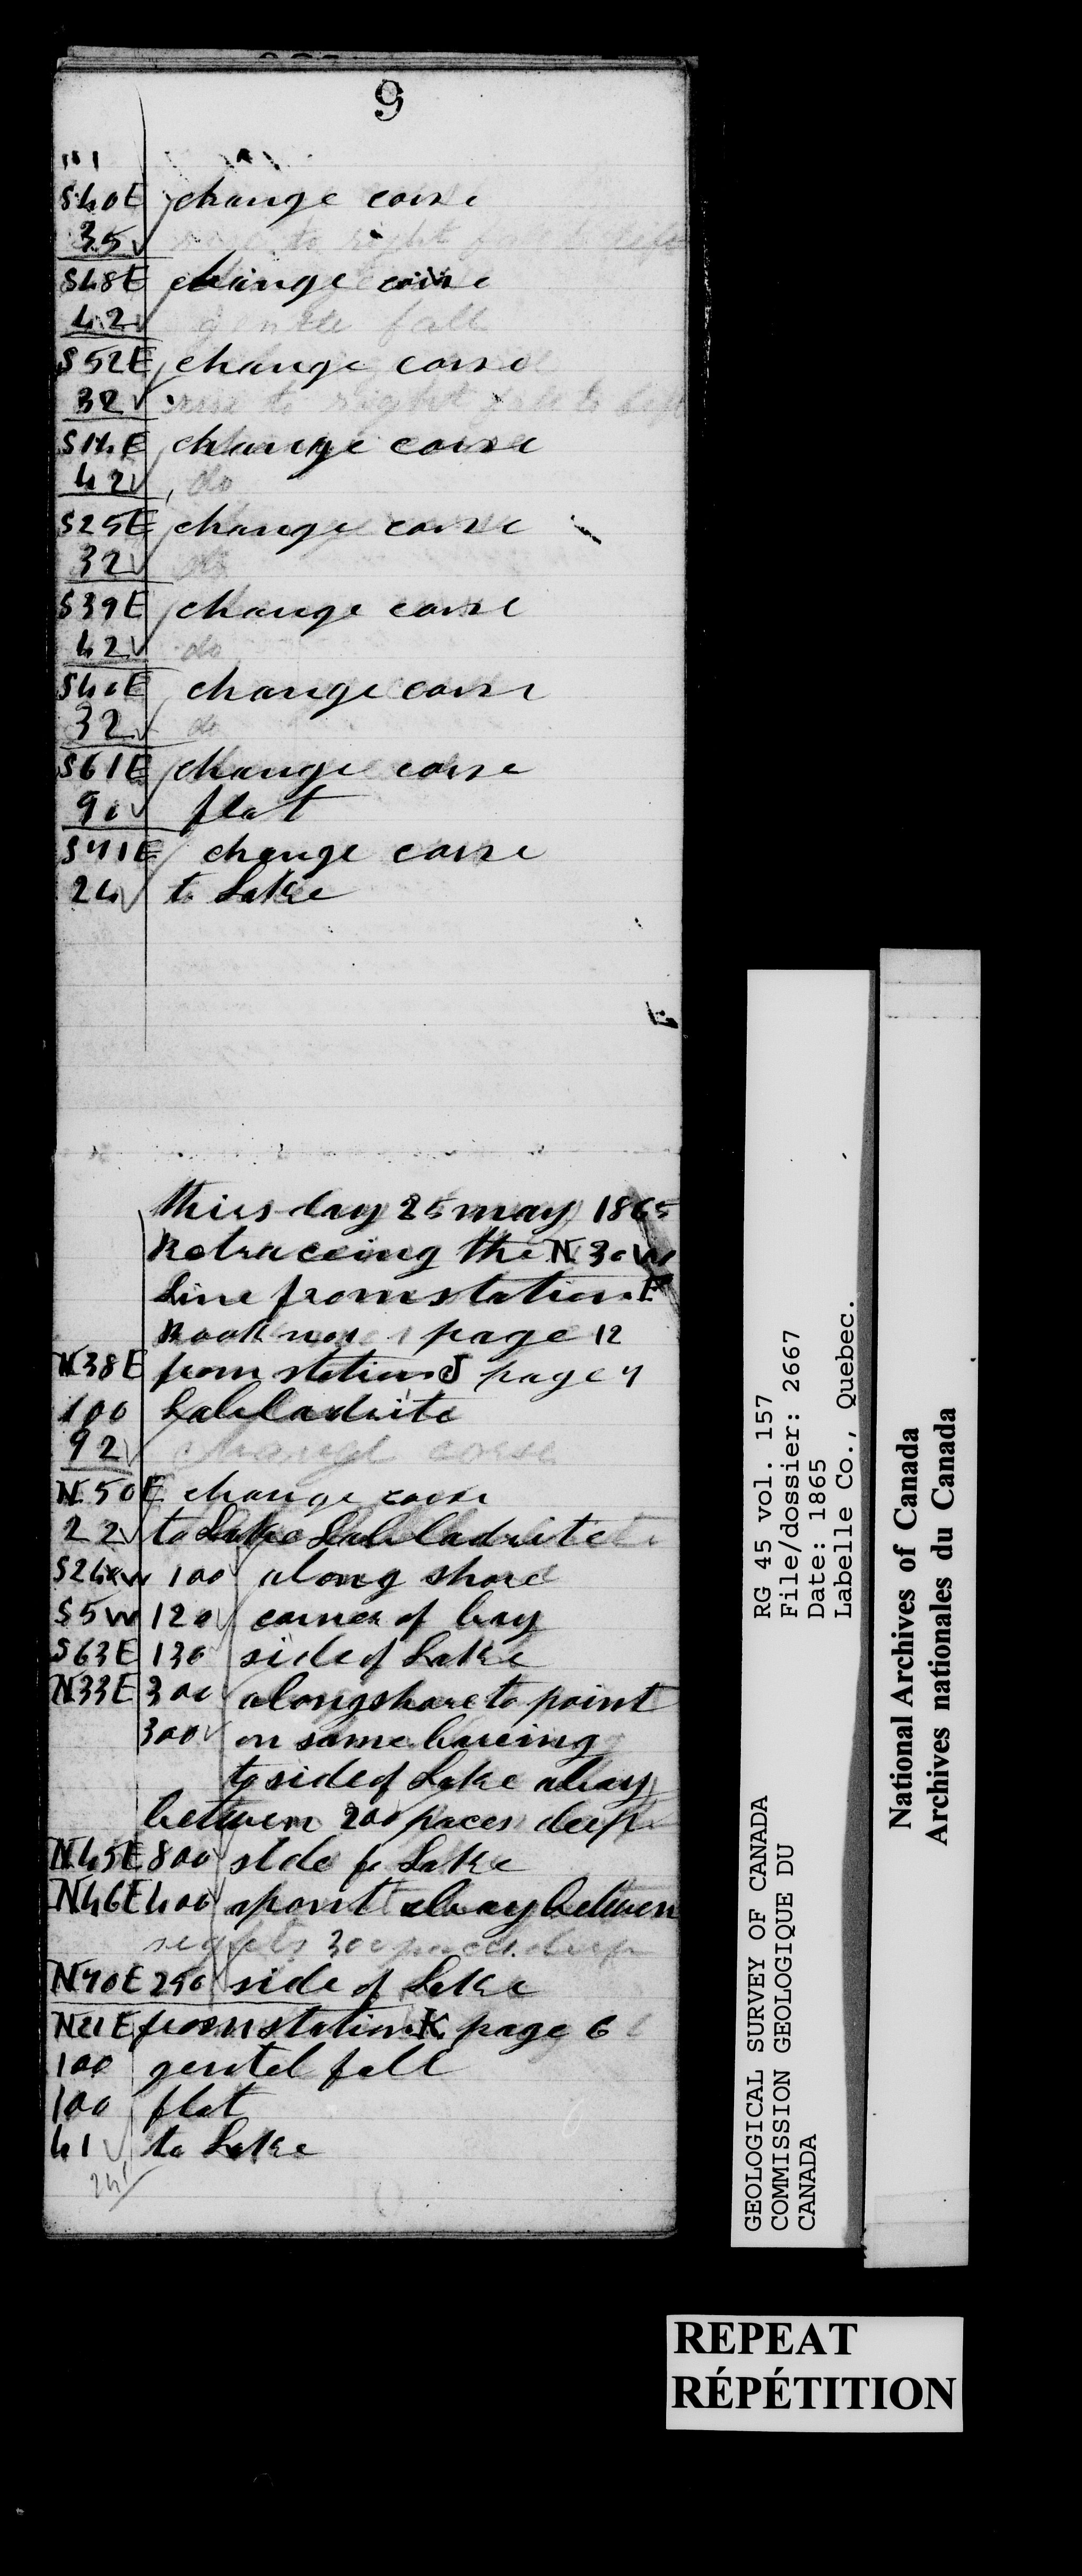 9
S40E change corse
35 rise to right fall to left
S48E change corse
42 gentle fall
S52E change corse
32 rise to right fall to left
S14E change corse
42 do
S25E change corse
32 do
S39E change corse
42 do
S40E change corse
32 do
S61E change corse
90 flat
S71E change corse
24 to Lake
thirsday 25 may 1865
Retraceing the N30W
Line from station F
Book no 1 page 12
N38E from station J page 7
100 Labladrite
92 change corse
N50E change corse
22 to Lake Labladrite
S24W 100 along shore
S5W 120 corner of bay
S63E 130 side of Lake
N33E 300 along shore to point
300 on same bareing
to side of Lake abay
betwen 200 paces deep
N45E 800 side fo Lake
N46E 400 apoint abay betwen
sights 300 paces deep
N70E 250 side of Lake
N21E from station K page 6
100 gentel fall
100 flat
41 to Lake
241
GEOLOGICAL SURVEY OF CANADA
COMMISSION GEOLOGIQUE DU
CANADA
RG 45 vol. 157
File/dossier: 2667
Date: 1865
Labelle Co., Quebec.
National Archives of Canada
Archives nationales du Canada
REPEAT
RÉPÉTITION